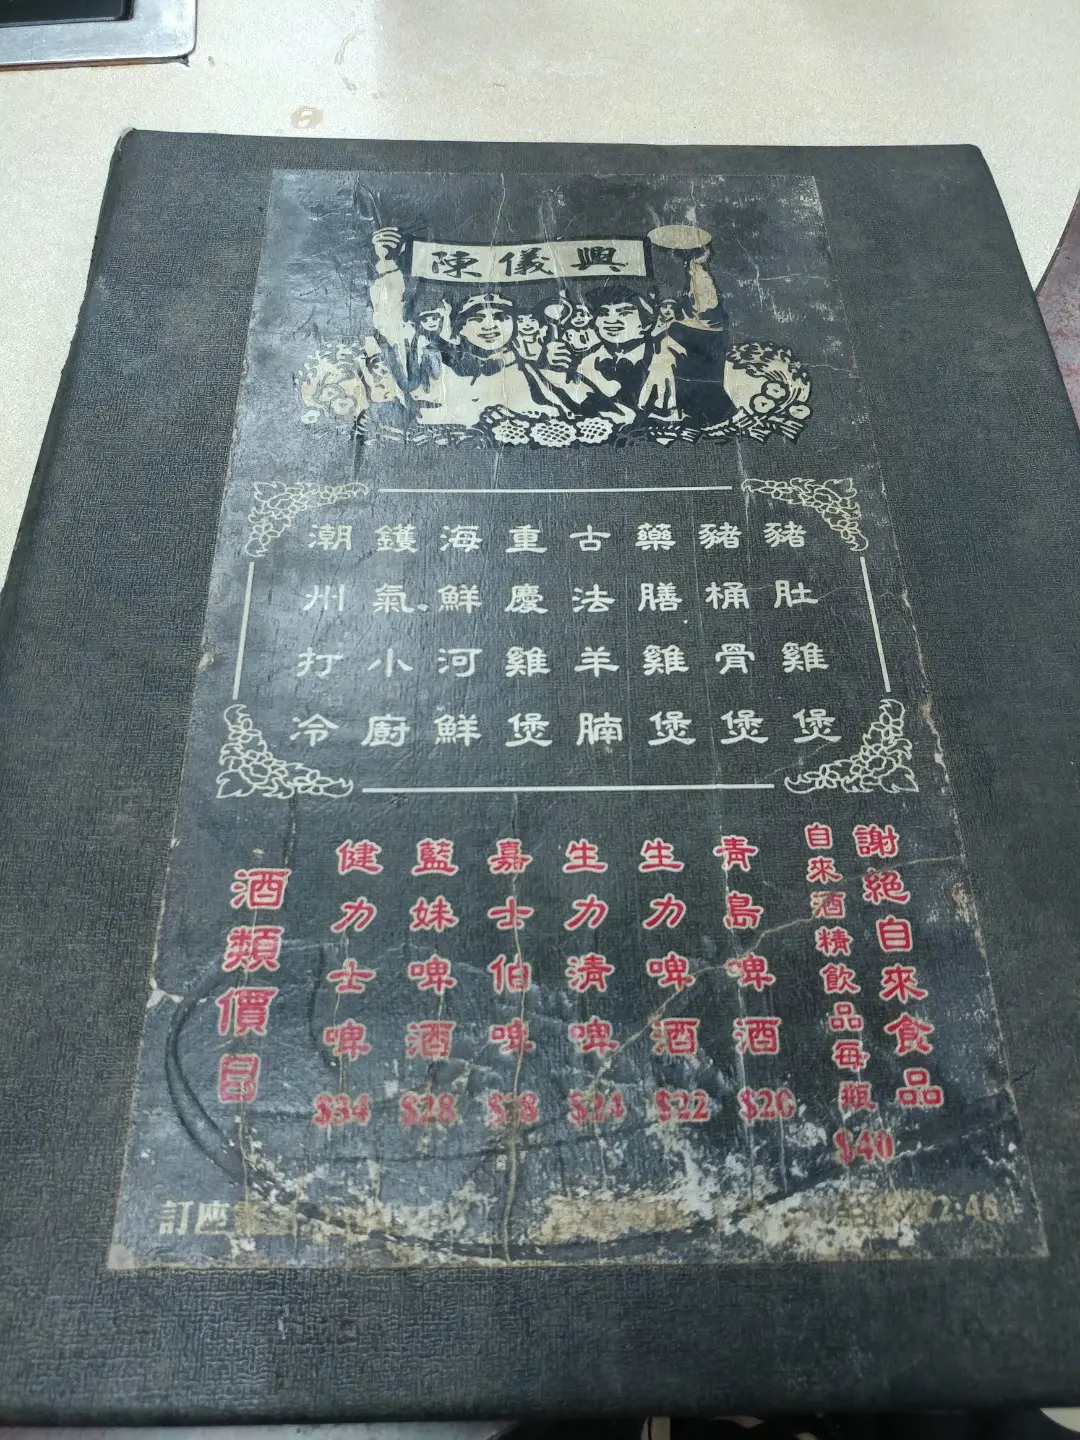 陳儀興
豬肚雞煲
豬桶骨煲
藥膳雞煲
古法羊腩
重慶雞煲
海鮮河鮮
鑊氣小廚
潮州打冷
謝絕自來食品
自來酒精飲品每瓶 $40
青島啤酒 $20
生力啤酒 $22
生力清啤 $24
嘉士伯啤 $28
藍妹啤酒 $28
健力士啤 $34
酒類價目
訂座